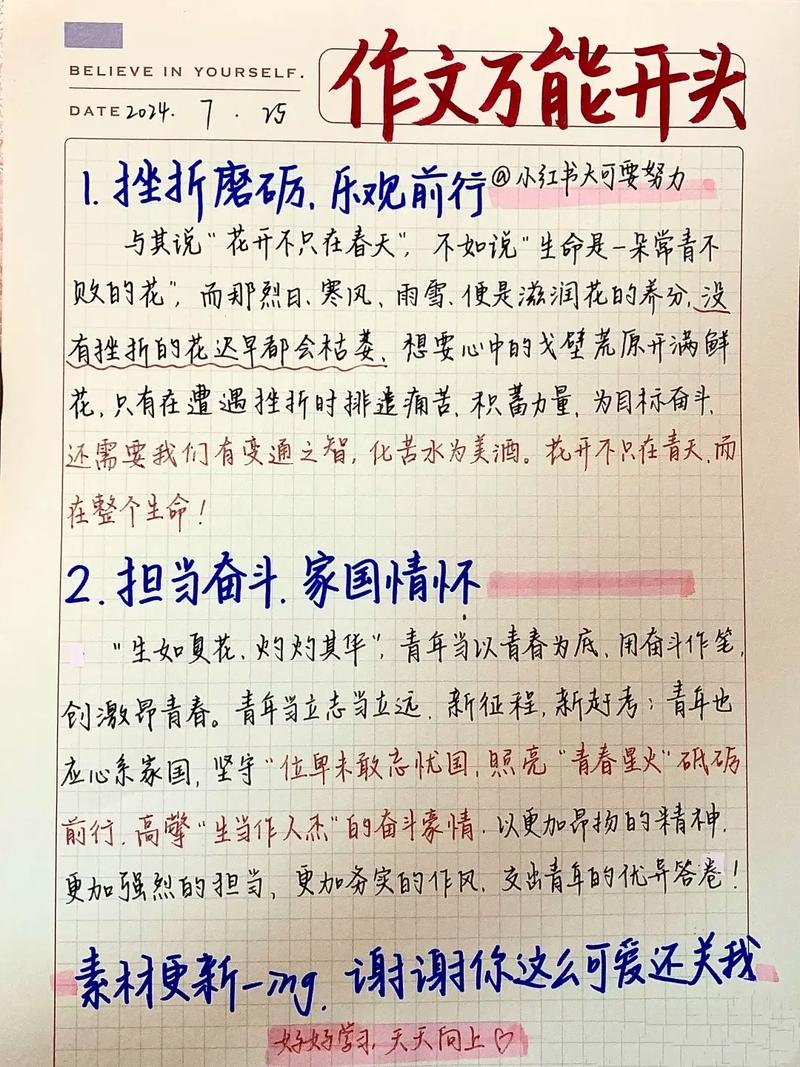 BELIEVE IN YOURSELF.
DATE 2024. 7 . 25
作文万能开头
1. 挫折磨砺,乐观前行
@小红书大可要努力
与其说“花开不只在春天”,不如说“生命是一朵常青不
败的花”,而那烈日、寒风、雨雪、便是滋润花的养分,没
有挫折的花迟早都会枯萎,想要心中的戈壁荒原开满鲜
花,只有在遭遇挫折时排遣痛苦,积蓄力量,为目标奋斗,
还需要我们有变通之智,化苦水为美酒。花开不只在青天,而
在整个生命!
2. 担当奋斗,家国情怀
“生如夏花,灼灼其华”,青年当以青春为底,用奋斗作笔,
创激昂青春。青年当立志当立远,新征程,新赶考;青年也
应心系家国,坚守“位卑未敢忘忧国,照亮“青春星火”砥砺
前行,高擎“生当作人杰”的奋斗豪情,以更加昂扬的精神,
更加强烈的担当,更加务实的作风,交出青年的优异答卷!
素材更新—ing,谢谢你这么可爱还关我
好好学习,天天向上♡